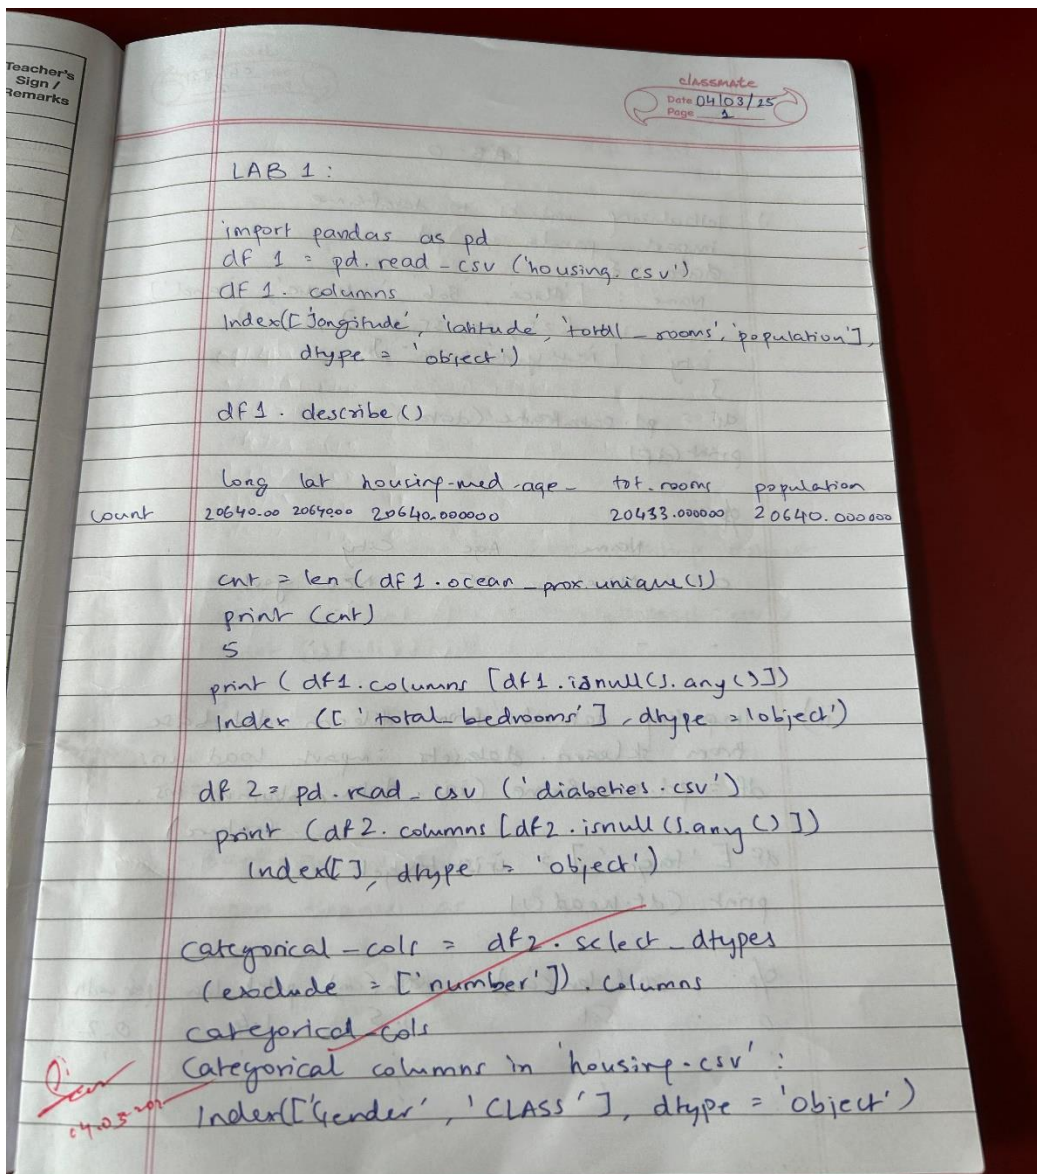 Teacher's
Sign /
Remarks
classmate
Date 04/03/25
Page 1
LAB 1 :
import pandas as pd
df 1 = pd. read_csv ('housing. csv')
df 1. columns
Index(['longitude', 'latitude', 'total_rooms', 'population'],
dtype = 'object')
df1. describe()
long lat housing-med-age- tot.rooms population
count 20640.00 20640.00 20640.000000 20433.000000 20640.000000
cnt = len (df1.ocean_prox.unique())
print (cnt)
5
print (df1.columns [df1.isnull().any()])
Index (['total_bedrooms'], dtype = 'object')
df 2 = pd. read_csv ('diabeties.csv')
print (df2. columns [df2. isnull().any()])
Index[], dtype = 'object')
categorical-cols = df2. select_dtypes
(exclude = ['number']). columns
categorical-cols
Categorical columns in 'housing.csv' :
Index(['Gender', 'CLASS'], dtype = 'object')